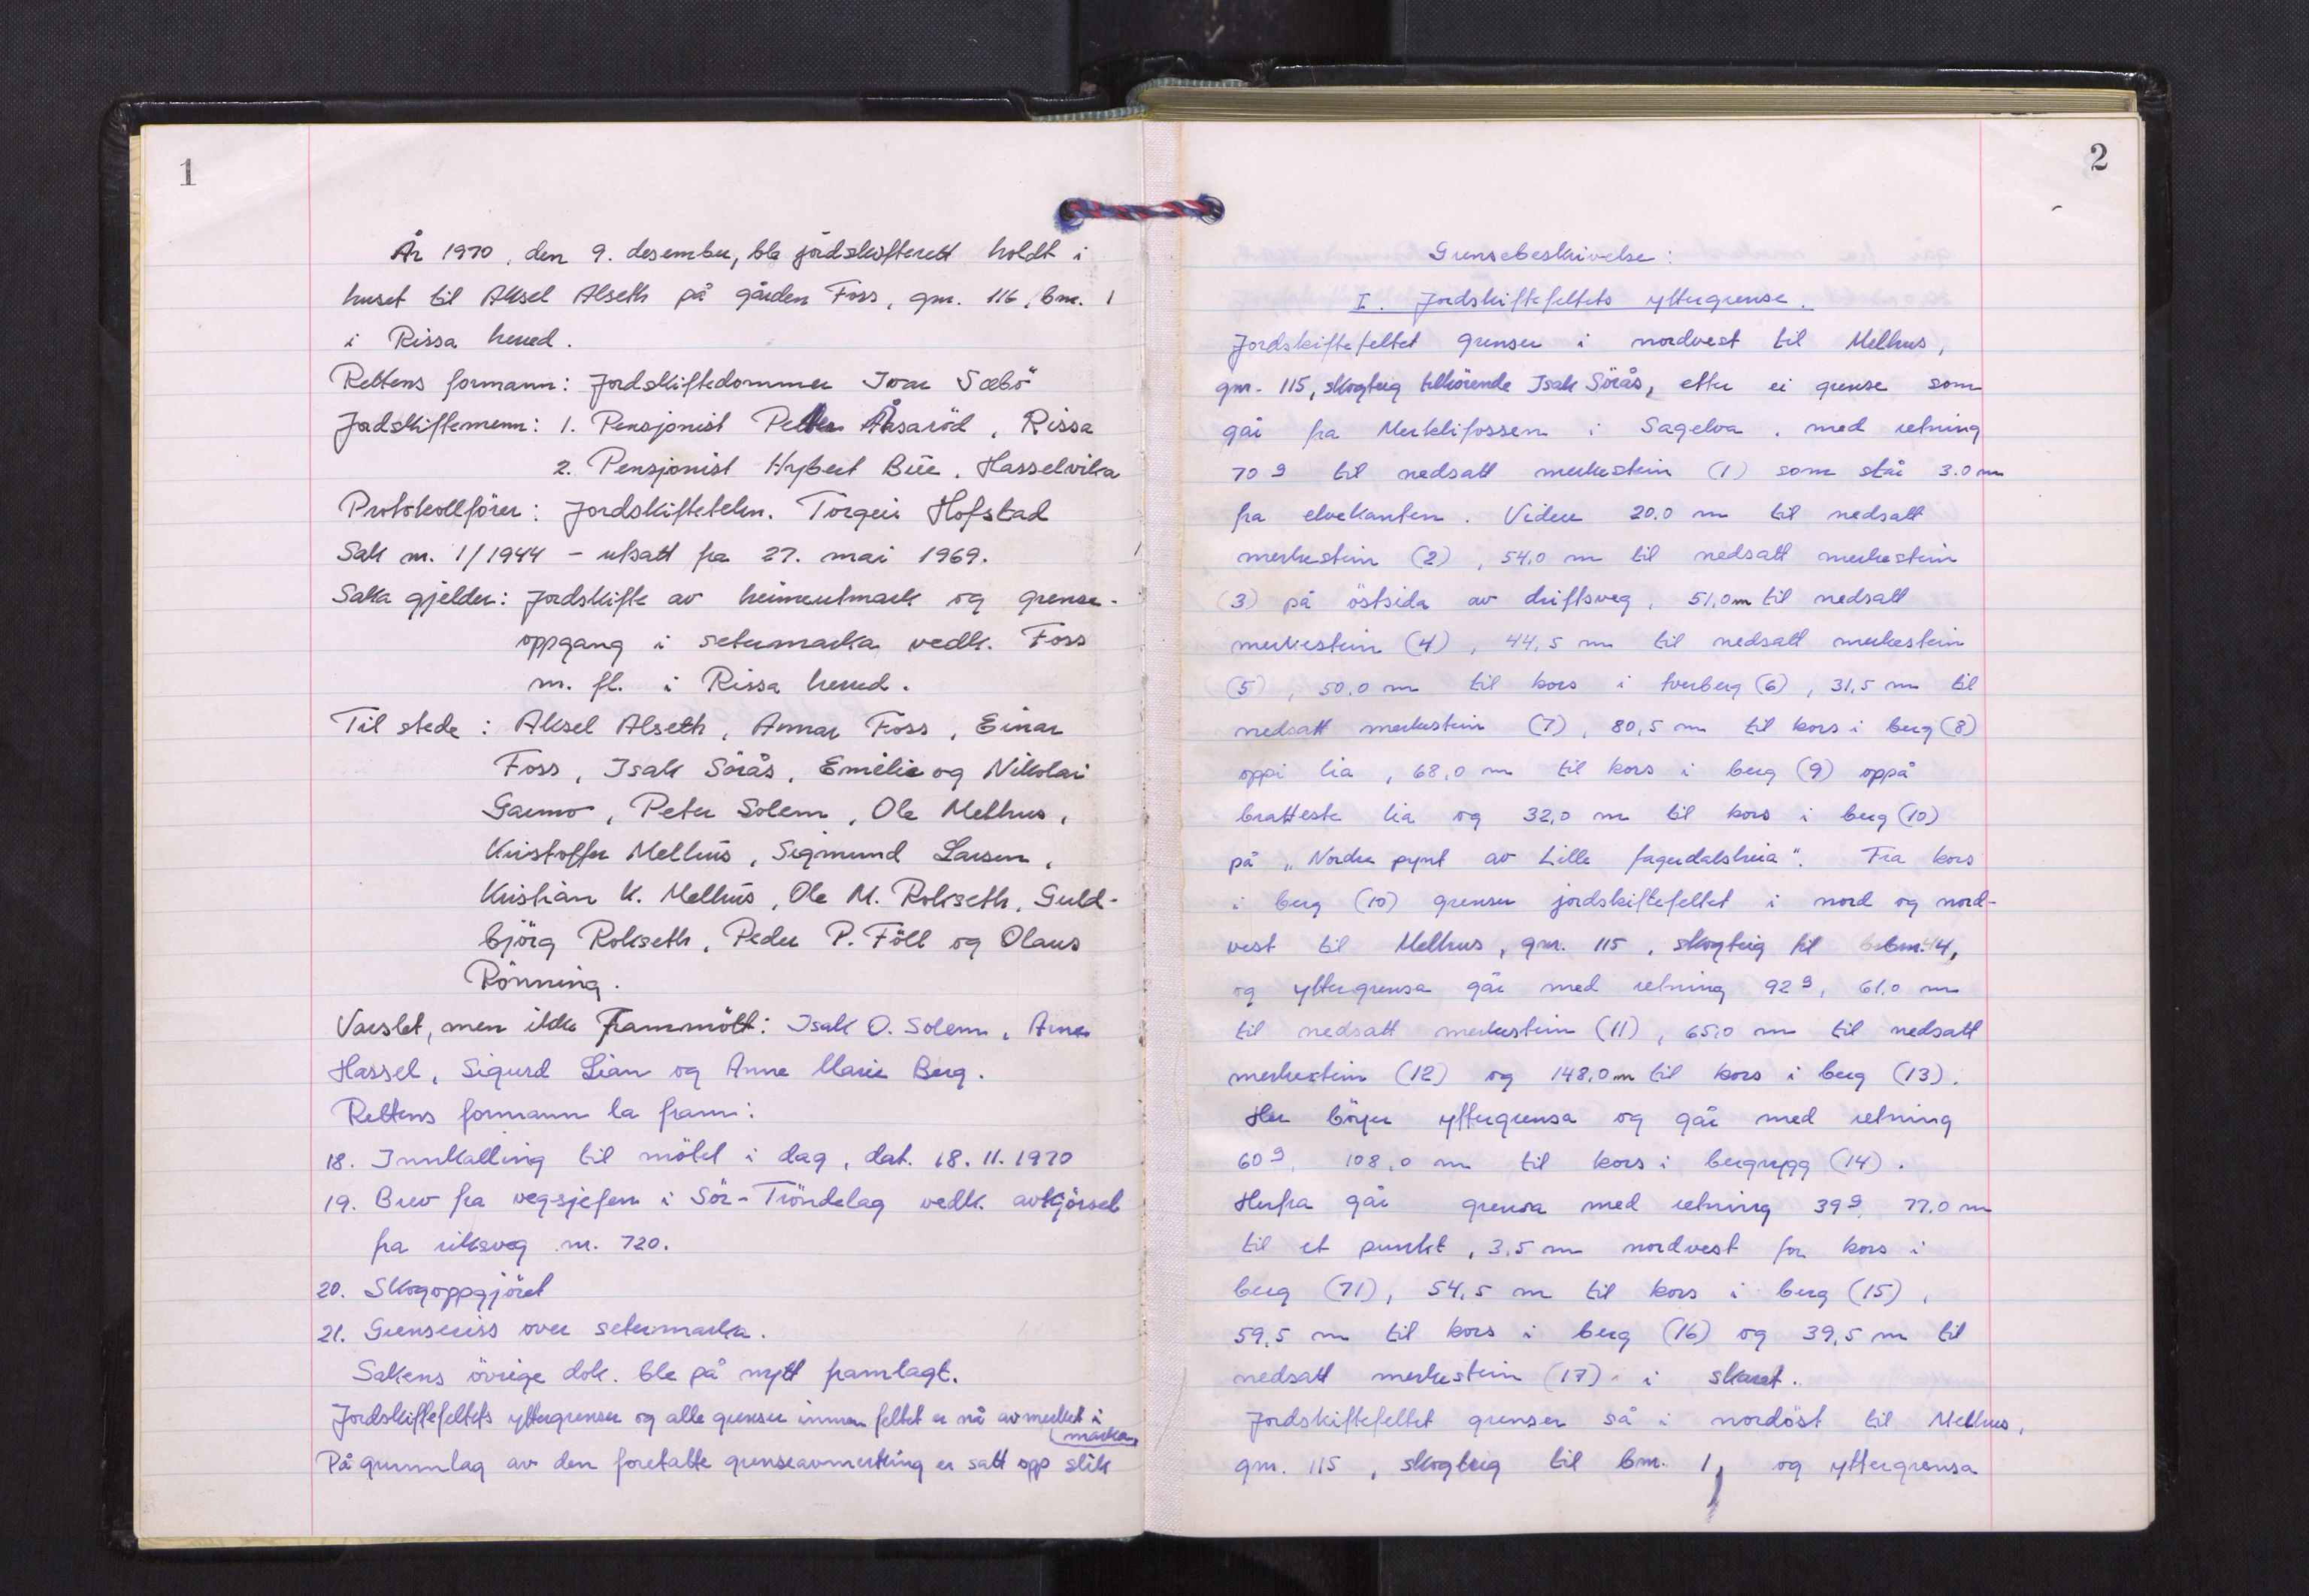 1
År 1970, den 9. desember, ble jordskifterett holdt i
huset til Aksel Alseth på gården Foss, gnr. 116, bnr. 1
i Rissa herred.
Rettens formann: Jordskiftedommer Ivar Sæbö
Jordskiftemenn: 1. Pensjonist Petter Åsaröd, Rissa
2. Pensjonist Hybert Büe, Hasselvika
Protokollförer: Jordskiftetekn. Torgeir Hofstad
Sak nr. 1/1944 - utsatt fra 27. mai 1969.
Saka gjelder: Jordskifte av heimeutmark og grense-
oppgang i setermarka vedk. Foss
m. fl. i Rissa herred.
Til stede: Aksel Alseth, Annar Foss, Einar
Foss, Isak Sörås, Emelie og Nikolai
Garmo, Peter Solem, Ole Melhus,
Kristoffer Melhus, Sigmund Larsen,
Kristian K. Melhus, Ole M. Rokseth, Guld-
björg Rokseth, Peder P. Föll og Olaus
Rönning.
Varslet, men ikke frammött: Isak O. Solem, Arne
Hassel, Sigurd Lian og Anne Marie Berg.
Rettens formann la fram:
18. Innkalling til mötet i dag, dat. 18.11.1970
19. Brev fra vegsjefen i Sör-Tröndelag vedk. avkjörsel
fra riksveg nr. 720.
20. Skogoppgjöret
21. Grenseriss over setermarka.
Sakens övrige dok. ble på nytt framlagt.
Jordskiftefeltets yttergrenser og alle grenser innen feltet er nå avmerket i
marka.
På grunnlag av den foretatte grenseavmerking er satt opp slik
2
Grensebeskrivelse:
I. Jordskiftefeltets yttergrense.
Jordskiftefeltet grenser i nordvest til Melhus,
gnr. 115, skogteig tilhörende Isak Sörås, etter ei grense som
går fra Merklifossen i Sagelva, med retning
70 g til nedsatt merkestein (1) som står 3.0 m
fra elvekanten. Videre 20.0 m til nedsatt
merkestein (2), 54,0 m til nedsatt merkestein
(3) på östsida av driftsveg, 51,0 m til nedsatt
merkestein (4), 44,5 m til nedsatt merkestein
(5), 50,0 m til kors i tverberg (6), 31,5 m til
nedsatt merkestein (7), 80,5 m til kors i berg (8)
oppi lia, 68,0 m til kors i berg (9) oppå
bratteste lia og 32,0 m til kors i berg (10)
på „Nordre pynt av Lille fagerdalsheia“. Fra kors
i berg (10) grenser jordskiftefeltet i nord og nord-
vest til Melhus, gnr. 115, skogteig til bnr. 44,
og yttergrensa går med retning 92 g, 61,0 m
til nedsatt merkestein (11), 65,0 m til nedsatt
merkestein (12) og 148,0 m til kors i berg (13).
Her böyer yttergrensa og går med retning
60 g, 108,0 m til kors i bergrygg (14).
Herfra går grensa med retning 39 g, 77,0 m
til et punkt, 3,5 m nordvest for kors i
berg (71), 54,5 m til kors i berg (15),
59,5 m til kors i berg (16) og 39,5 m til
nedsatt merkestein (17) i skaret.
Jordskiftefeltet grenser så i nordöst til Melhus,
gnr. 115, skogteig til bnr. 1, og yttergrensa